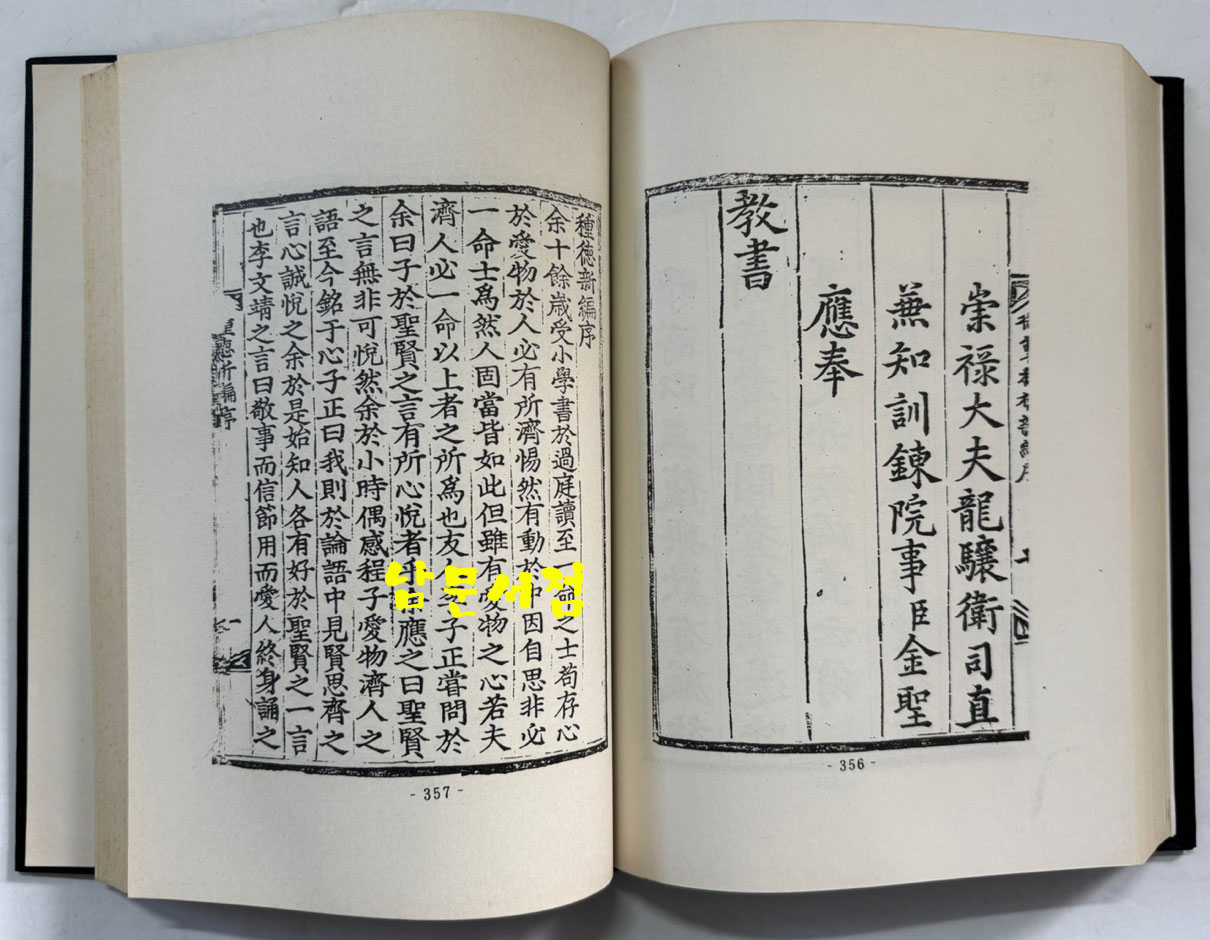 崇祿大夫龍驤衛司直
兼知訓鍊院事臣金聖
應奉
教書
- 356 -
種德新編序
余十餘歲受小學書於過庭讀至一命之士苟存心
於愛物於人必有所濟惕然有動於中因自思非必
一命士爲然人固當皆如此但雖有愛物之心若夫
濟人必一命以上者之所爲也友人子正嘗問於
余曰子於聖賢之言有所心悅者乎余應之曰聖賢
之言無非可悅然余於小時偶感程子愛物濟人之
語至今銘于心子正曰我則於論語中見賢思齊之
言心誠悅之余於是始知人各有好於聖賢之一言
也李文靖之言曰敬事而信節用而愛人終身誦之
德新編序
- 357 -
남문서점